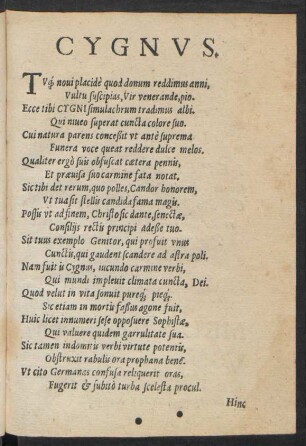 CYGNVS.
TVq́; noui placidè quod donum reddimus anni,
Vultu suscipias, Vir venerande, pio.
Ecce tibi CYGNI simulachrum tradimus albi
Qui niueo superat cuncta colore suo.
Cui natura parens concessit vt antè suprema
Funera voce queat reddere dulce melos.
Qualiter ergò suis obfuscat cætera pennis,
Et præuisa suo carmine fata notat.
Sic tibi det rerum, quo polles, Candor honorem,
Vt tua sit stellis candida fama magis.
Possis vt ad finem, Christo sic dante, senectæ,
Consilijs rectis principi adesse tuo.
Sit tuus exemplo Genitor, qui profuit vnus
Cunctis, qui gaudent scandere ad astra poli.
Nam fuit is Cygnus, iucundo carmine verbi,
Qui mundi impleuit climata cuncta, Dei.
Quod velut in vita sonuit pureq́; pieq́;
Sic etiam in mortis faßus agone fuit,
Huic licet innumeri sese opposuere Sophistæ,
Qui valuere quidem garrulitate sua.
Sic tamen indomitis verbi virtute potentis,
Obstruxit rabulis ora prophana benè.
Vt cito Germanas confusa reliquerit oras,
Fugerit & subitò turba scelesta procul.
Hinc